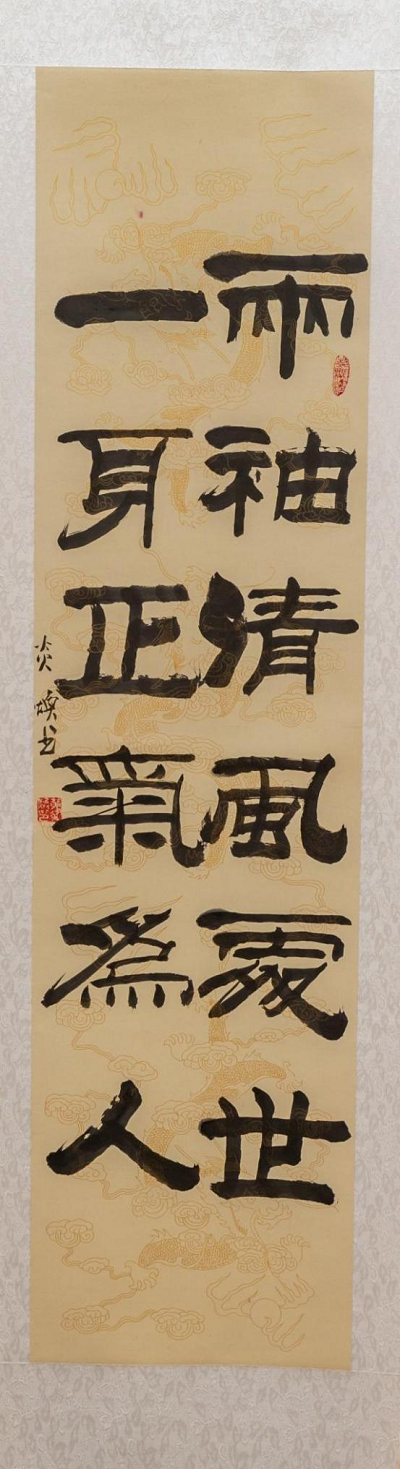 兩袖清風處世
一身正氣為人
炎煥书